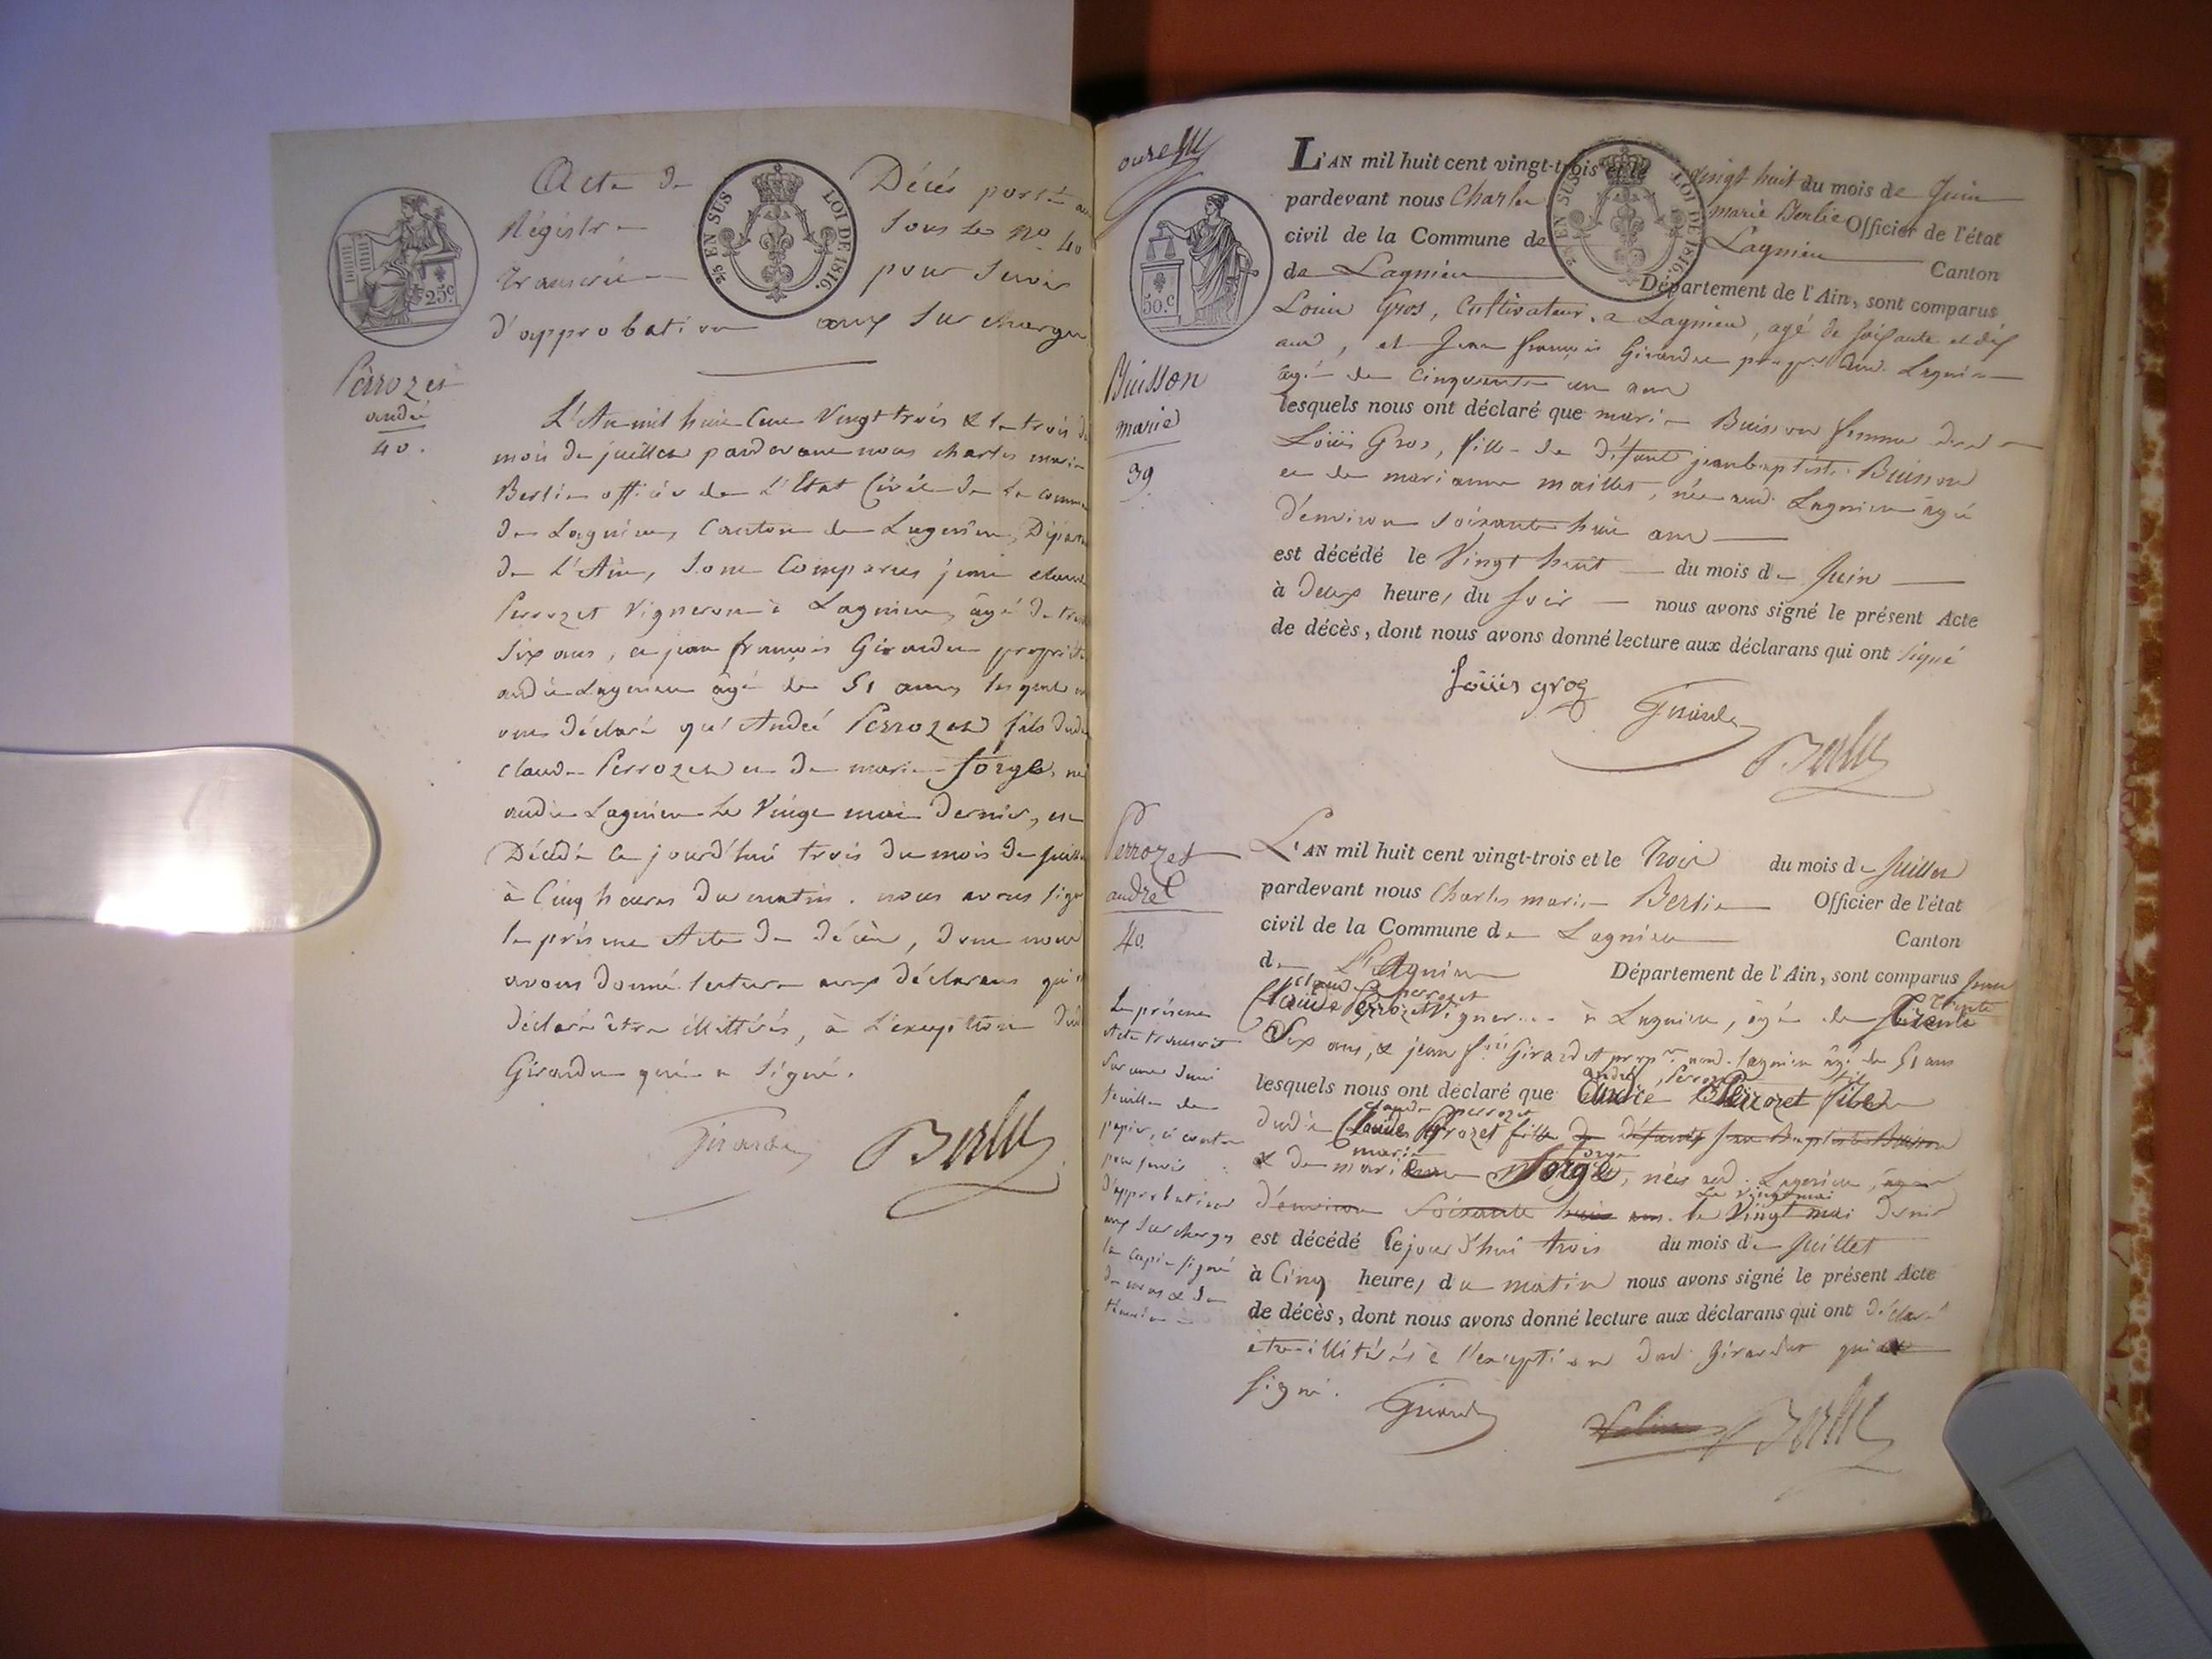 Acte de Décés porté au
Régistre sous le No 40
transcrit pour servir
d'approbation aux surcharges
2/5 EN SUS
LOI DE 1816.
25c
Perrozet
andré
40.
L'An mil huit Cent Vingt trois & le trois du
mois de juillet pardevant nous charles marie
Berlie officier de L'Etat Civil de La commune
de Lagnieu, Canton de Lagnieu, Départ
de L'Ain, sont Comparus jean claude
Perrozet Vigneron à Lagnieu, âgé de trente
six ans, et jean françois Girardet propriét
audit Lagnieu âgé de 51 ans, lesquels
ont déclaré qu'André Perrozet fils dudit
claude Perrozet et de marie forge, né
audit Lagnieu Le Vingt mai dernier, est
Décédé ce jourd'hui trois du mois de juillet
à Cinq heures du matin. nous avons signé
le présent Acte de décès, dont nous
avons donné lecture aux déclarans qui
déclaré être illittérés, à L'exception dud
Girardet qui a signé.
Girardet
Berlie
50.c
2/5 EN SUS
LOI DE 1816.
L'AN mil huit cent vingt-trois et le vingt huit du mois de Juin
pardevant nous Charles marie Berlie Officier de l'état
civil de la Commune de Lagnieu Canton
de Lagnieu Département de l'Ain, sont comparus
Louis Gros, Cultivateur, a Lagnieu, agé de soissante et dix
ans, et Jean françois Girardet propr. aud. Lagnieu
âgé de cinquante un ans
Buisson
marie
39
lesquels nous ont déclaré que marie Buisson femme dud
Loüis Gros, fille de défunt jeanbaptiste Buisson
et de marianne maillet, née aud. Lagnieu âgé
d'environ soixante huit ans
est décédé le Vingt huit du mois de Juin
à deux heures du soir nous avons signé le présent Acte
de décès, dont nous avons donné lecture aux déclarans qui ont signé
Loüis gros
Girardet
Berlie
Perrozet
andré
40.
L'AN mil huit cent vingt-trois et le trois du mois de Juillet
pardevant nous Charles marie Berlie Officier de l'état
civil de la Commune de Lagnieu Canton
de Lagnieu Département de l'Ain, sont comparus Jean
claude perrozet trente
Claude Perrozet Vigneron à Lagnieu, âgé de trente
Six ans, & jean fois Girardet propre aud. Lagnieu âgé de 51 ans
andré Perrozet
lesquels nous ont déclaré que André Perrozet fils
claude perrozet
dudit Claude Perrozet fille de défunt Jean Baptiste Buisson
marie forge
& de marie forge, née aud. Lagnieu, âgée
Le vingt mai
d'environ soixante huit ans. le Vingt mai dernier
est décédé Cejourd'hui trois du mois de Juillet
à Cinq heures du matin nous avons signé le présent Acte
de décès, dont nous avons donné lecture aux déclarans qui ont déclaré
être illitérés à l'exception dud. Girardet qui a
signé.
Le présent
Acte transcrit
sur une demi
feuille de
papier, ci contre
pour servir
d'approbation
aux surcharges
la copie signé
de nous & des
témoins
Girardet
Berlie